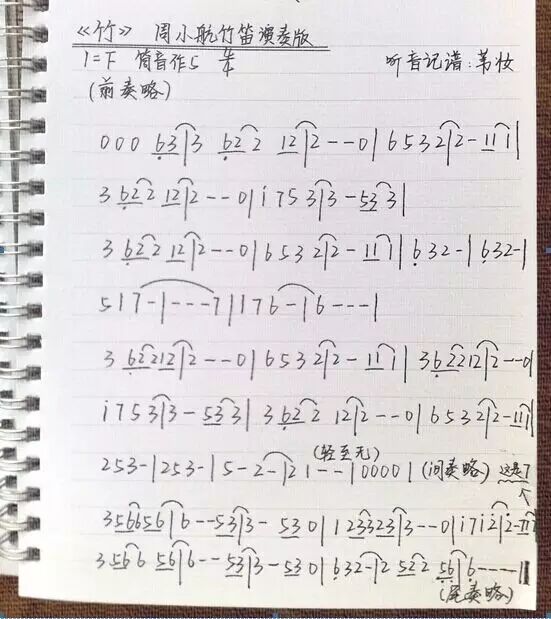 《竹》 周小航竹笛演奏版
1=F 筒音作5 4/4 听音记谱:苇妆
(前奏略)
000 63|3 622 12|2--0|6532|2-11|
3 622 12|2--0|i753|3-533|
3 622 12|2--0|6532|2-111|632-|632-|
517-|---7|176-|6---|
3 62212|2--0|6532|2-111|3 62212|2--0|
i753|3-533|3 622 12|2--0|6532|2-111|
(轻至无)
253-|253-|5-2-|21--|0000|(间奏略) 这是7
356656|6--53|3-530|123323|3--0|i7i2|2-77
3566 56|6--53|3-530|632-|2 522 56|6----‖
(尾奏略)